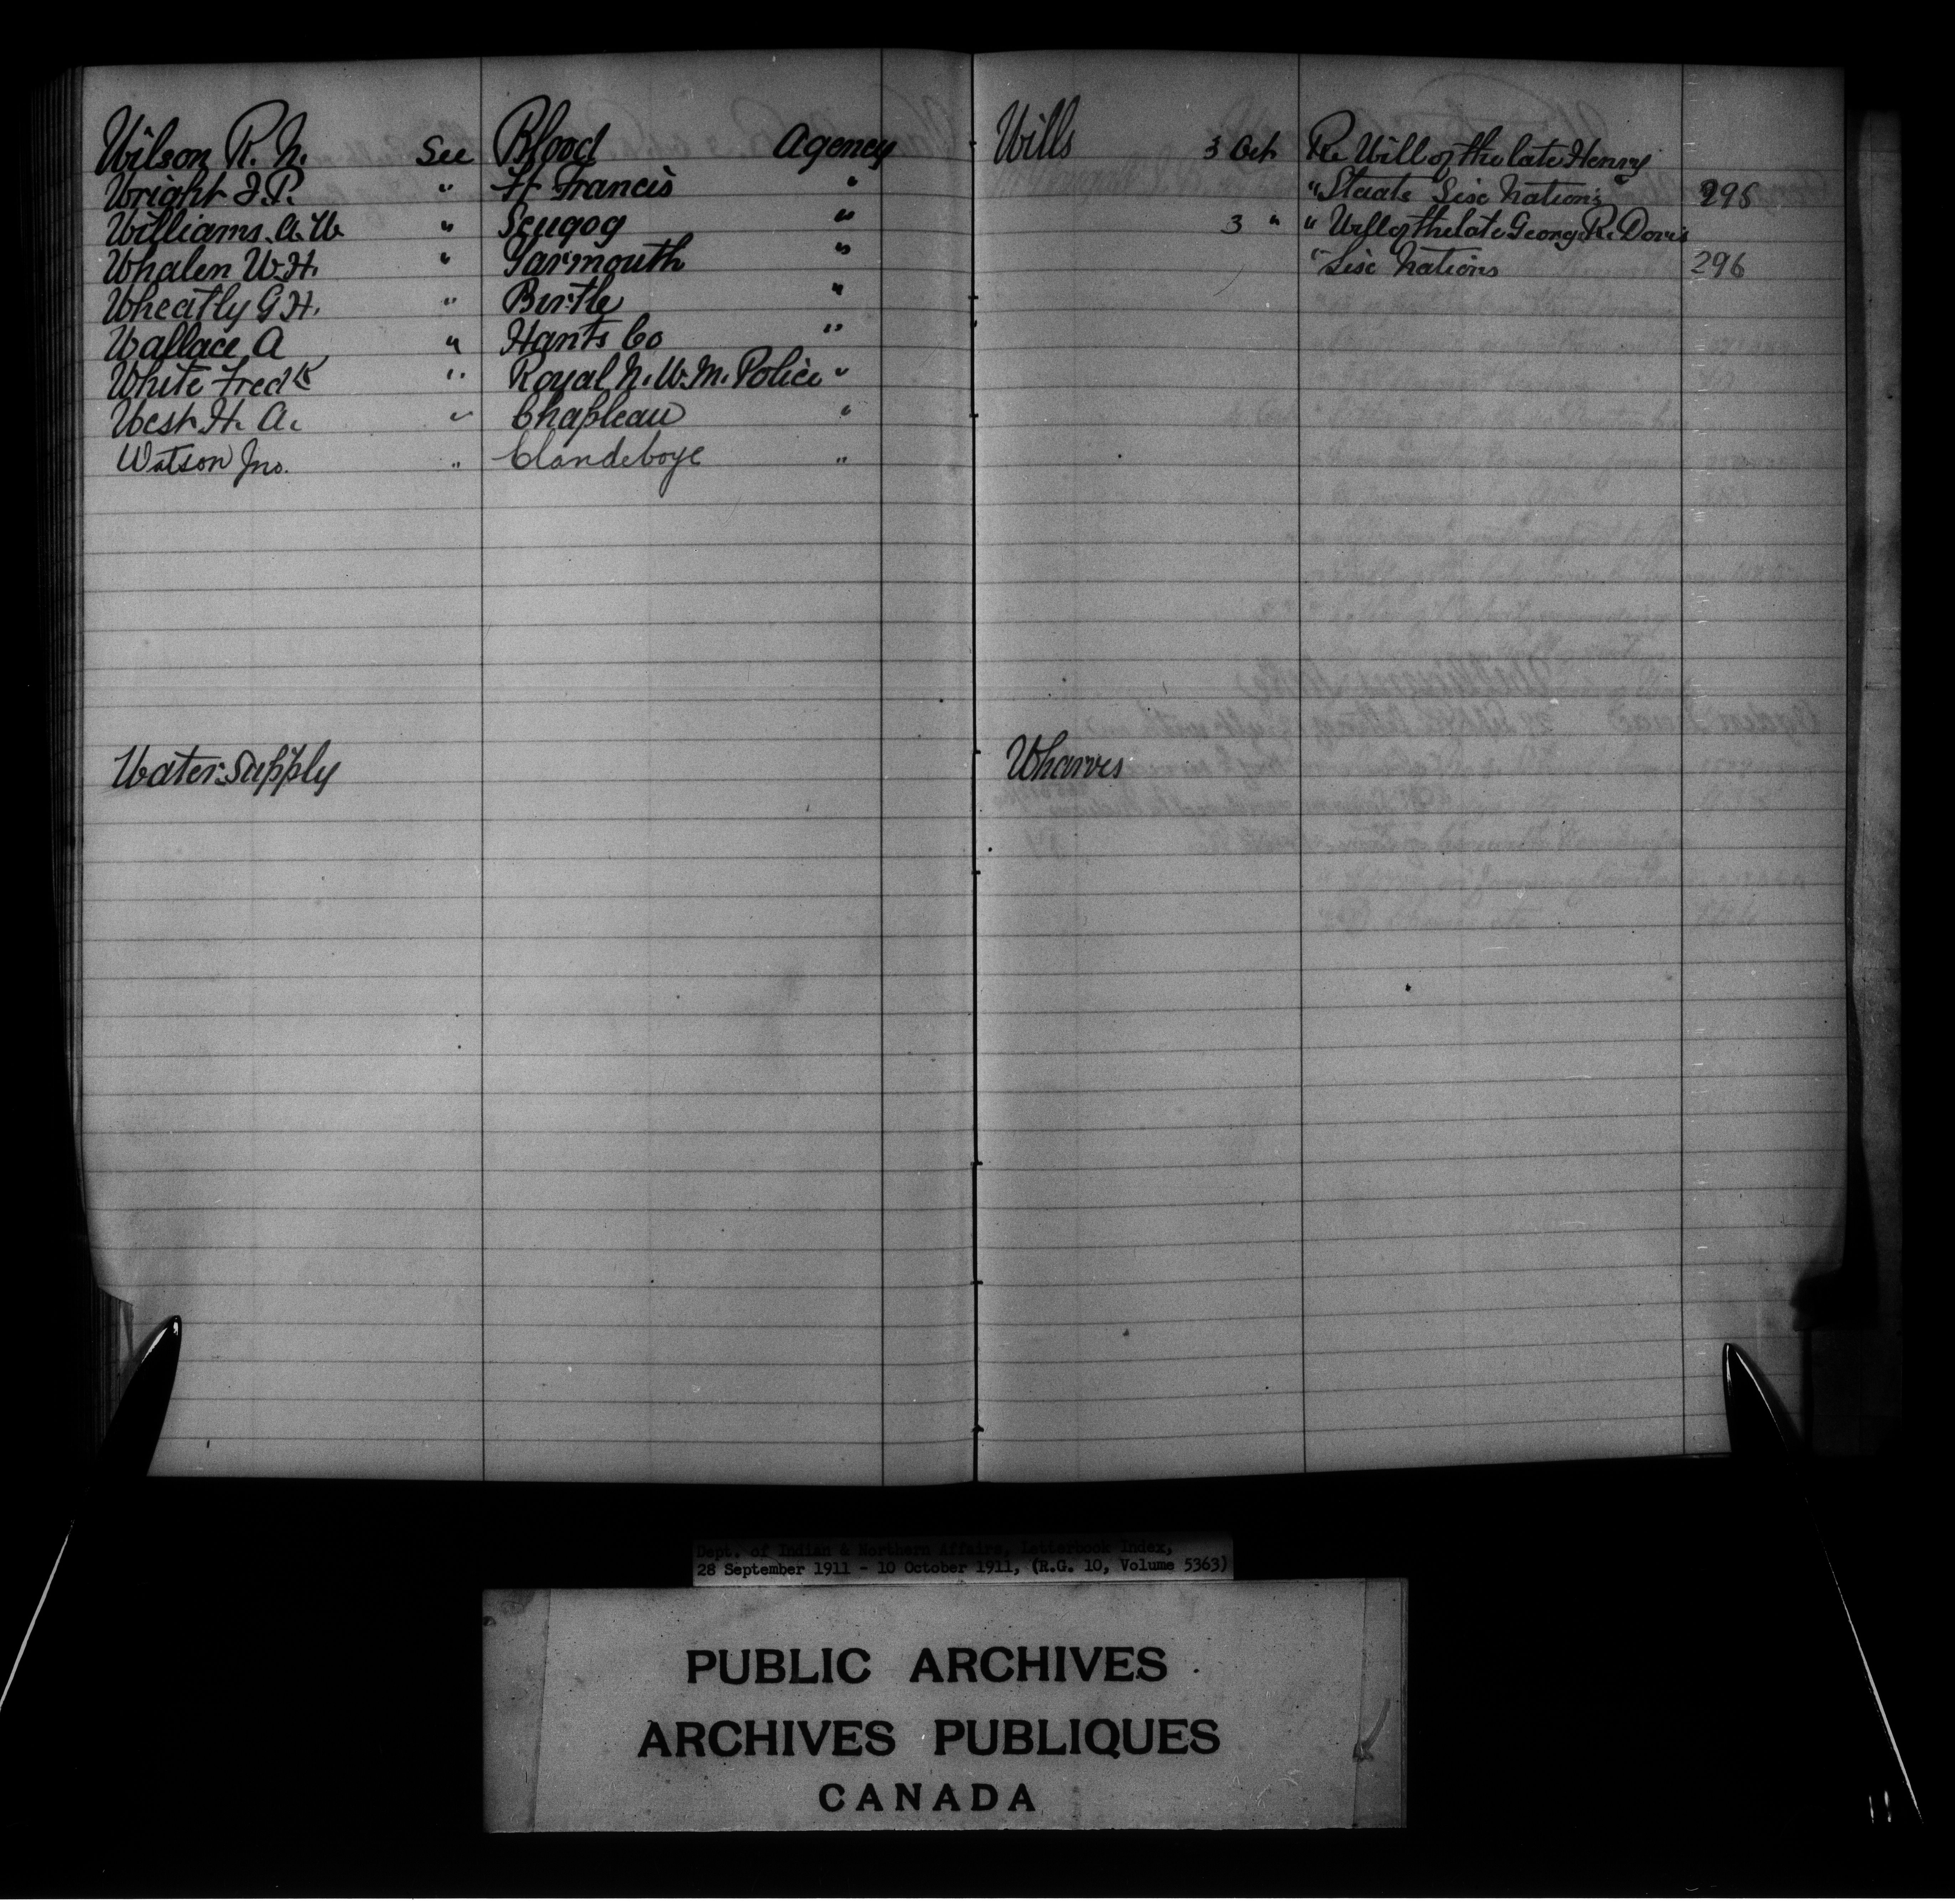 Wilson R. N. See Blood Agency
Wright J. P. " St Francis "
Williams A. W. " Scugog "
Whalen W. H. " Yarmouth "
Wheatly G H. " Birtle "
Wallace, A " Hants Co "
White Fred K " Royal N. W. M. Police "
West H. A. " Chapleau "
Watson Jno. " Clandeboye "
Water Supply
Wills 3 Oct Re Will of the late Henry
" Staats Six Nations 295
3 " " Will of the late George R. Davis
" Six Nations 296
Wharves
Dept. of Indian & Northern Affairs, Letterbook Index,
28 September 1911 - 10 October 1911, (R.G. 10, Volume 5363)
PUBLIC ARCHIVES
ARCHIVES PUBLIQUES
CANADA